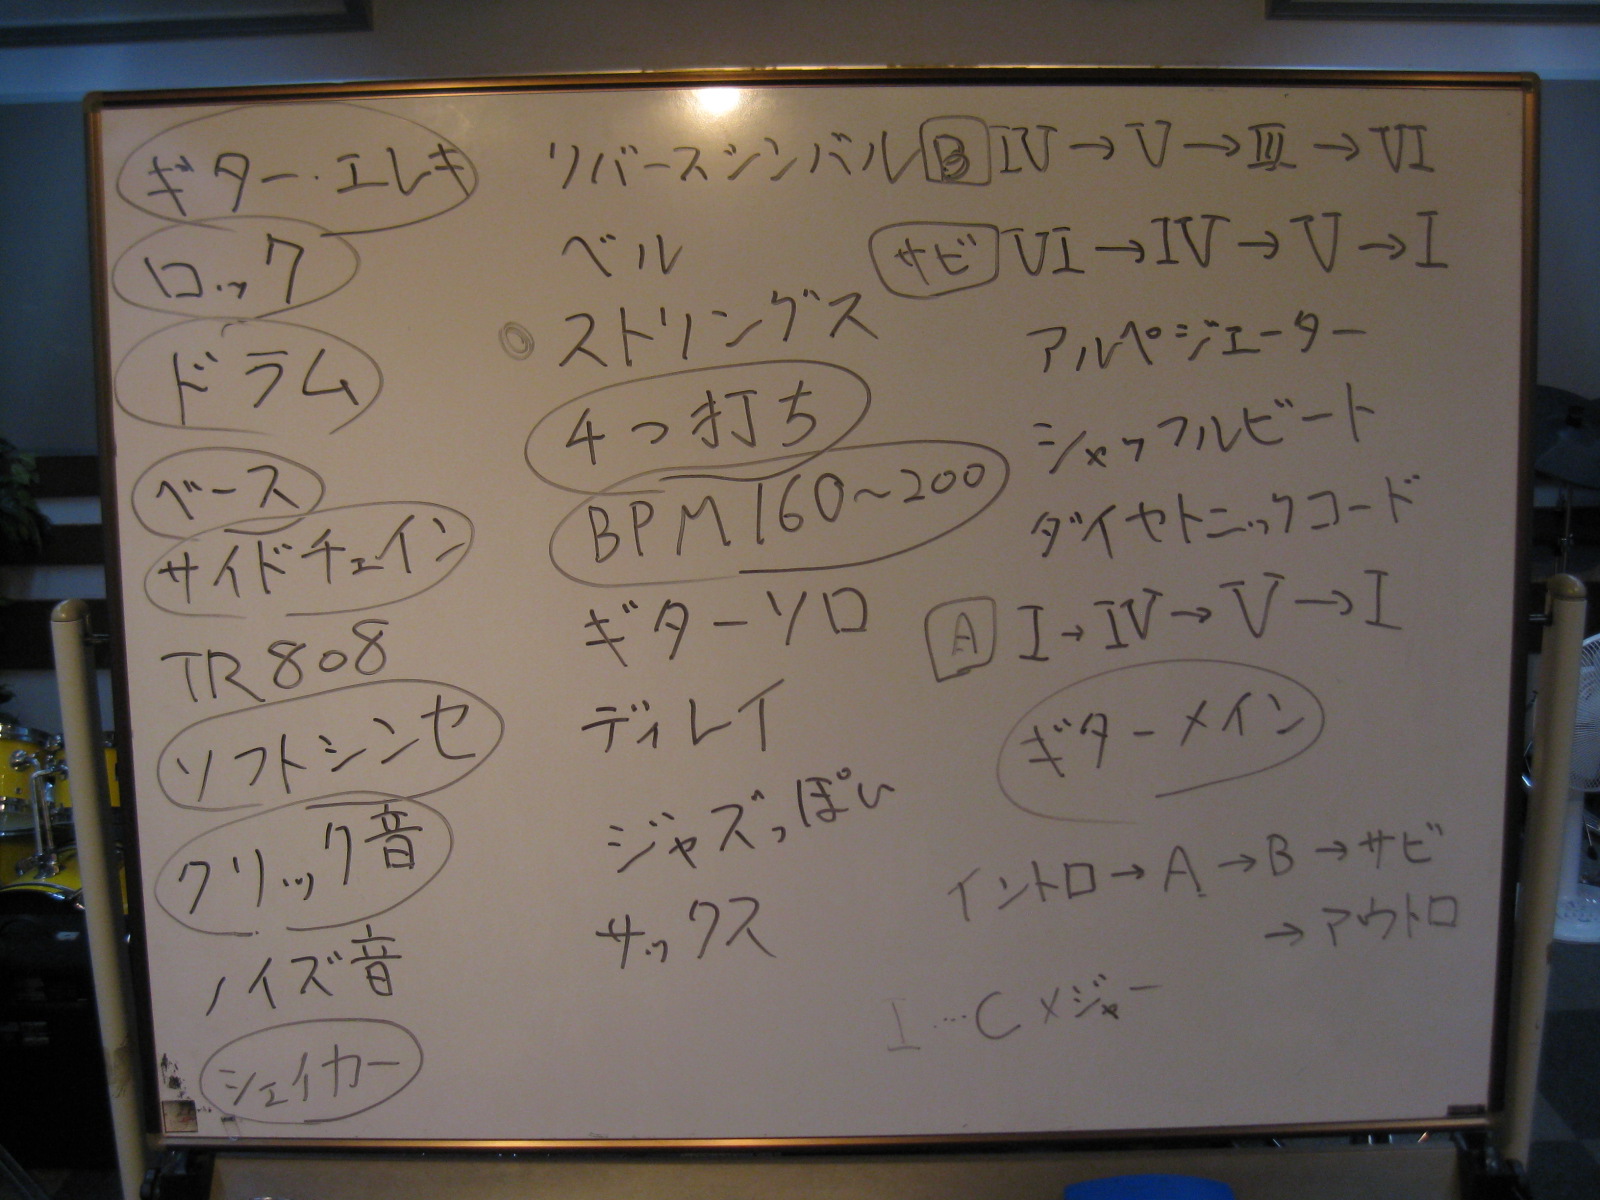 ギター・エレキ
ロック
ドラム
ベース
サイドチェイン
TR808
ソフトシンセ
クリック音
ノイズ音
シェイカー
リバースシンバル
ベル
◎ストリングス
4つ打ち
BPM160~200
ギターソロ
ディレイ
ジャズっぽい
サックス
B IV→V→III→VI
サビ VI→IV→V→I
アルペジエーター
シャッフルビート
ダイヤトニックコード
A I→IV→V→I
ギターメイン
イントロ→A→B→サビ
→アウトロ
I…Cメジャー